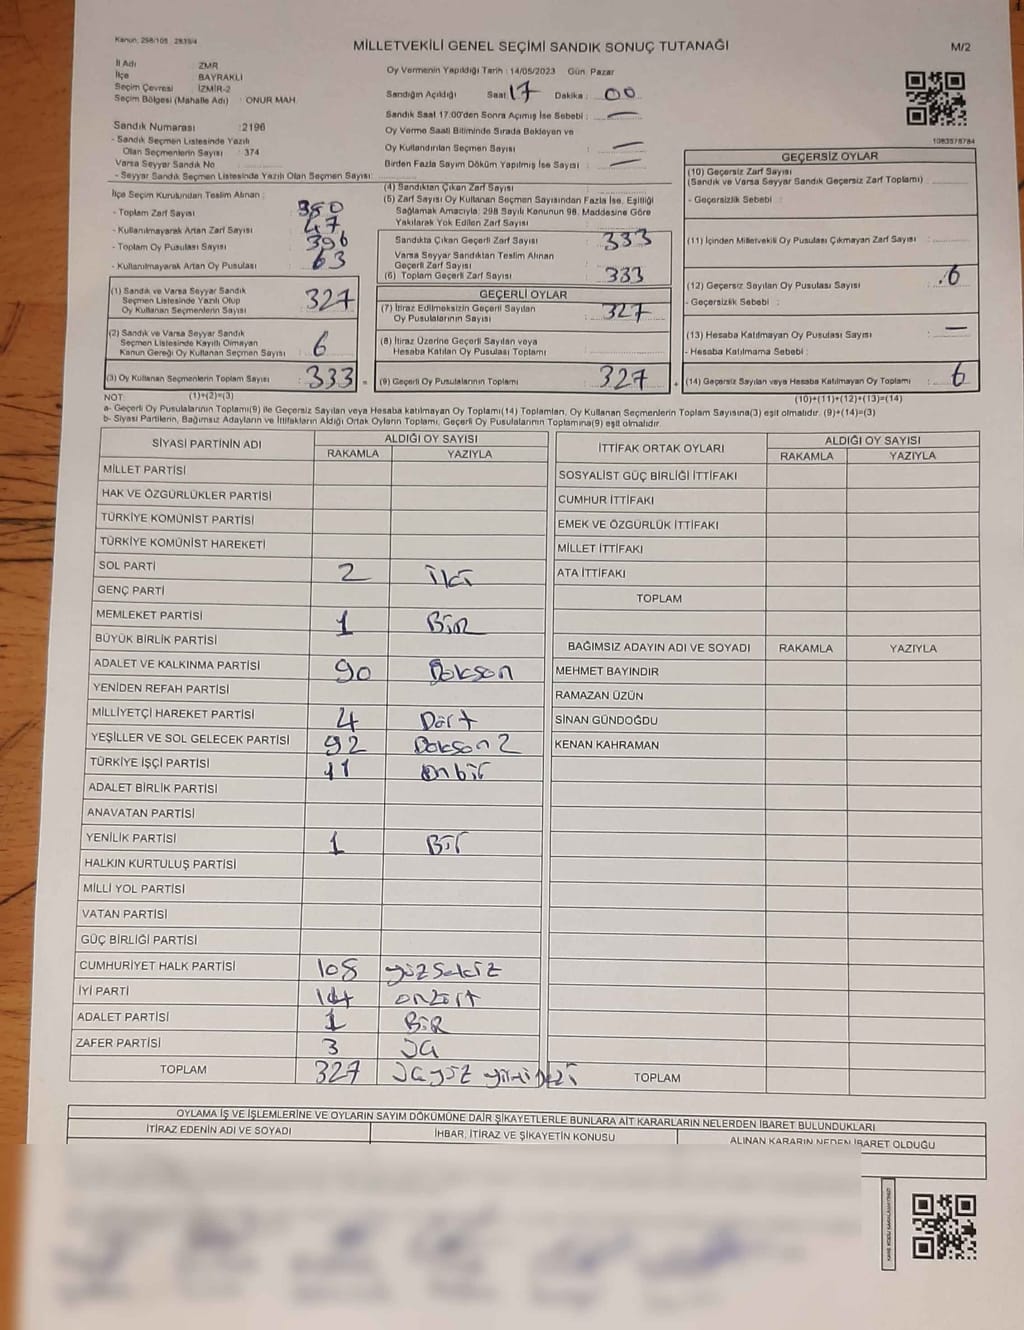 Kanun: 298/105 : 2839/4
MİLLETVEKİLİ GENEL SEÇİMİ SANDIK SONUÇ TUTANAĞI
M/2
İl Adı : ZMR
İlçe : BAYRAKLI
Seçim Çevresi : İZMİR-2
Seçim Bölgesi (Mahalle Adı) : ONUR MAH.
Oy Vermenin Yapıldığı Tarih : 14/05/2023 Gün: Pazar
Sandığın Açıldığı Saat 17 Dakika : 00
Sandık Saat 17:00'den Sonra Açımış İse Sebebi : —
Oy Verme Saati Bitiminde Sırada Bekleyen ve
Oy Kullandırılan Seçmen Sayısı : —
Birden Fazla Sayım Döküm Yapılmış İse Sayısı : —
Sandık Numarası : 2196
- Sandık Seçmen Listesinde Yazılı
Olan Seçmenlerin Sayısı : 374
Varsa Seyyar Sandık No :
- Seyyar Sandık Seçmen Listesinde Yazılı Olan Seçmen Sayısı:
1083575784
İlçe Seçim Kurulundan Teslim Alınan :
- Toplam Zarf Sayısı : 380
- Kullanılmayarak Artan Zarf Sayısı : 47
- Toplam Oy Pusulası Sayısı : 396
- Kullanılmayarak Artan Oy Pusulası : 63
(1) Sandık ve Varsa Seyyar Sandık
Seçmen Listesinde Yazılı Olup
Oy Kullanan Seçmenlerin Sayısı : 327
(2) Sandık ve Varsa Seyyar Sandık
Seçmen Listesinde Kayıtlı Olmayan
Kanun Gereği Oy Kullanan Seçmen Sayısı : 6
(3) Oy Kullanan Seçmenlerin Toplam Sayısı : 333 =
(4) Sandıktan Çıkan Zarf Sayısı :
(5) Zarf Sayısı Oy Kullanan Seçmen Sayısından Fazla İse, Eşitliği
Sağlamak Amacıyla; 298 Sayılı Kanunun 98. Maddesine Göre
Yakılarak Yok Edilen Zarf Sayısı :
Sandıkta Çıkan Geçerli Zarf Sayısı : 333
Varsa Seyyar Sandıktan Teslim Alınan
Geçerli Zarf Sayısı :
(6) Toplam Geçerli Zarf Sayısı : 333
GEÇERLİ OYLAR
(7) İtiraz Edilmeksizin Geçerli Sayılan
Oy Pusulalarının Sayısı : 327
(8) İtiraz Üzerine Geçerli Sayılan veya
Hesaba Katılan Oy Pusulası Toplamı :
(9) Geçerli Oy Pusulalarının Toplamı : 327 +
GEÇERSİZ OYLAR
(10) Geçersiz Zarf Sayısı
(Sandık ve Varsa Seyyar Sandık Geçersiz Zarf Toplamı) :
- Geçersizlik Sebebi :
(11) İçinden Milletvekili Oy Pusulası Çıkmayan Zarf Sayısı :
(12) Geçersiz Sayılan Oy Pusulası Sayısı : 6
- Geçersizlik Sebebi :
(13) Hesaba Katılmayan Oy Pusulası Sayısı : —
- Hesaba Katılmama Sebebi :
(14) Geçersiz Sayılan veya Hesaba Katılmayan Oy Toplamı : 6
NOT : (1)+(2)=(3)
(10)+(11)+(12)+(13)=(14)
a- Geçerli Oy Pusulalarının Toplamı(9) ile Geçersiz Sayılan veya Hesaba katılmayan Oy Toplamı(14) Toplamları, Oy Kullanan Seçmenlerin Toplam Sayısına(3) eşit olmalıdır. (9)+(14)=(3)
b- Siyasi Partilerin, Bağımsız Adayların ve İttifakların Aldığı Ortak Oyların Toplamı, Geçerli Oy Pusulalarının Toplamına(9) eşit olmalıdır.
SİYASİ PARTİNİN ADI ALDIĞI OY SAYISI
RAKAMLA YAZIYLA
MİLLET PARTİSİ
HAK VE ÖZGÜRLÜKLER PARTİSİ
TÜRKİYE KOMÜNİST PARTİSİ
TÜRKİYE KOMÜNİST HAREKETİ
SOL PARTİ 2 iki
GENÇ PARTİ
MEMLEKET PARTİSİ 1 BİR
BÜYÜK BİRLİK PARTİSİ
ADALET VE KALKINMA PARTİSİ 90 Dokson
YENİDEN REFAH PARTİSİ
MİLLİYETÇİ HAREKET PARTİSİ 4 Dört
YEŞİLLER VE SOL GELECEK PARTİSİ 92 Dokson 2
TÜRKİYE İŞÇİ PARTİSİ 11 onbir
ADALET BİRLİK PARTİSİ
ANAVATAN PARTİSİ
YENİLİK PARTİSİ 1 Bir
HALKIN KURTULUŞ PARTİSİ
MİLLİ YOL PARTİSİ
VATAN PARTİSİ
GÜÇ BİRLİĞİ PARTİSİ
CUMHURİYET HALK PARTİSİ 108 yüzsekiz
İYİ PARTİ 14
ADALET PARTİSİ 1 BİR
ZAFER PARTİSİ 3 üç
TOPLAM 327
İTTİFAK ORTAK OYLARI ALDIĞI OY SAYISI
RAKAMLA YAZIYLA
SOSYALİST GÜÇ BİRLİĞİ İTTİFAKI
CUMHUR İTTİFAKI
EMEK VE ÖZGÜRLÜK İTTİFAKI
MİLLET İTTİFAKI
ATA İTTİFAKI
TOPLAM
BAĞIMSIZ ADAYIN ADI VE SOYADI RAKAMLA YAZIYLA
MEHMET BAYINDIR
RAMAZAN ÜZÜN
SİNAN GÜNDOĞDU
KENAN KAHRAMAN
TOPLAM
OYLAMA İŞ VE İŞLEMLERİNE VE OYLARIN SAYIM DÖKÜMÜNE DAİR ŞİKAYETLERLE BUNLARA AİT KARARLARIN NELERDEN İBARET BULUNDUKLARI
İTİRAZ EDENİN ADI VE SOYADI İHBAR, İTİRAZ VE ŞİKAYETİN KONUSU ALINAN KARARIN NEDEN İBARET OLDUĞU